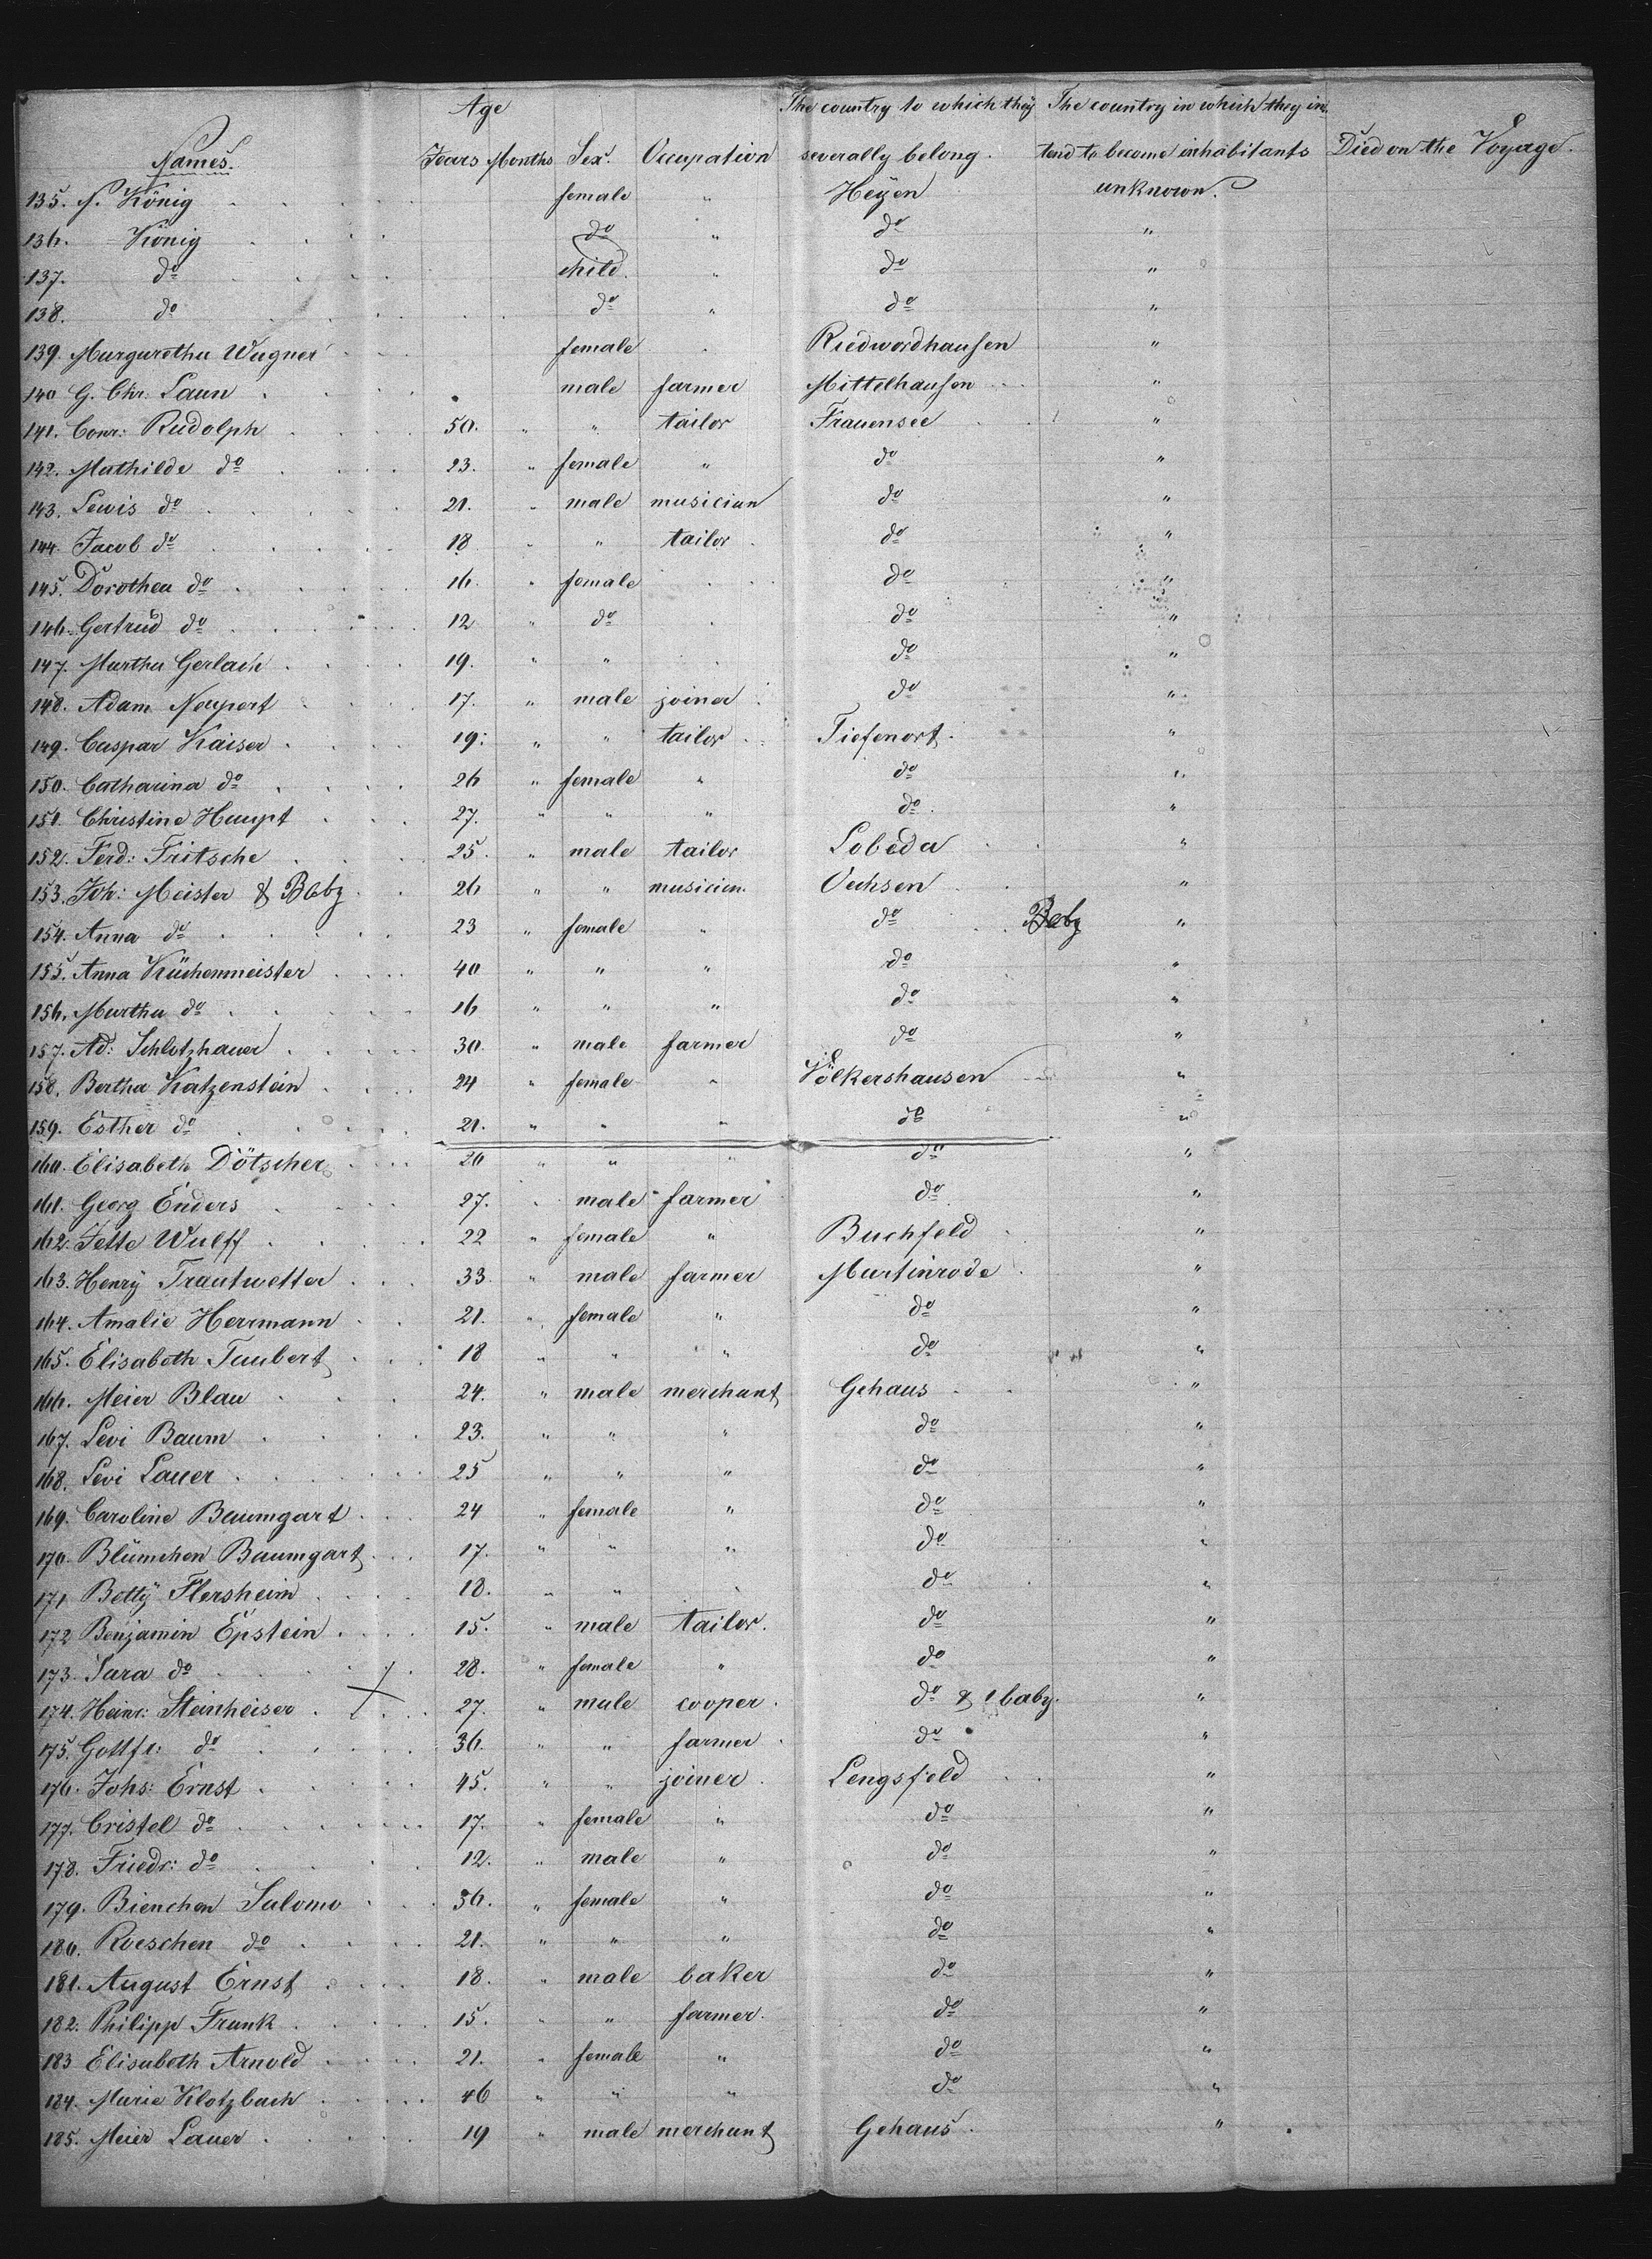 Age The country to which they The country in which they in
Names. Years Months Sex. Occupation severally belong. tend to become inhabitants Died on the Voyage.
135. König female " Heÿen unknown.
136. König do " do "
137. do child " do "
138. do do " do "
139. Margaretha Wagner female Riedwordhausen "
140 G. Chr: Laun male farmer Mittelhausen "
141. Conr: Rudolph 50. " " tailor Frauensee "
142. Mathilde do 23. " female " do "
143. Lewis do 21. " male musician do "
144. Jacob do 18 " " tailor do "
145. Dorothea do 16. " female do "
146. Gertrud do 12 " do do "
147. Martha Gerlach 19. " " do "
148. Adam Neupert 17. " male joiner do "
149. Caspar Kaiser 19. " " tailor Tiefenort. "
150. Catharina do 26 " female " do "
151. Christine Haupt 27. " " " do "
152. Ferd: Fritsche 25. " male tailor Lobeda "
153. Joh: Meister & Baby 26 " " musician Oechsen "
154. Anna do 23 " female " do Baby "
155. Anna Küchenmeister 40 " " " do "
156. Martha do 16 " " " do "
157. Ad: Schlotzhauer 30. " male farmer do "
158. Bertha Katzenstein 24 " female " Völkershausen "
159. Esther do 21. " " " do "
160. Elisabeth Dötscher 20 " " " do "
161. Georg Enders 27. " male farmer do "
162. Jette Wulff 22 " female " Buchfeld "
163. Henrÿ Trautwetter 33. " male farmer Martinrode "
164. Amalie Herrmann 21. " female " do "
165. Elisabeth Taubert 18 " " " do "
166. Meier Blau 24. " male merchant Gehaus "
167. Levi Baum 23. " " " do "
168. Levi Lauer 25 " " " do "
169. Caroline Baumgart 24 " female " do "
170. Blümchen Baumgart 17. " " " do "
171 Bettÿ Flersheim 18. " " " do "
172 Benjamin Epstein 15. " male tailor. do "
173. Sara do 28. " female " do "
174. Heinr: Steinheiser 27. " male cooper. do & 1 baby. "
175. Gottfr: do 36. " " farmer do "
176. Johs: Ernst 45. " " joiner. Lengsfeld "
177. Cristel do 17. " female " do "
178. Friedr: do 12. " male " do "
179. Bienchen Salomo 36. " female " do "
180. Roeschen do 21. " " " do "
181. August Ernst 18. " male baker do "
182. Philipp Frank 15. " " farmer. do "
183 Elisabeth Arnold 21. " female " do "
184. Marie Klotzbach 46 " " " do "
185. Meier Lauer 19 " male merchant Gehaus. "